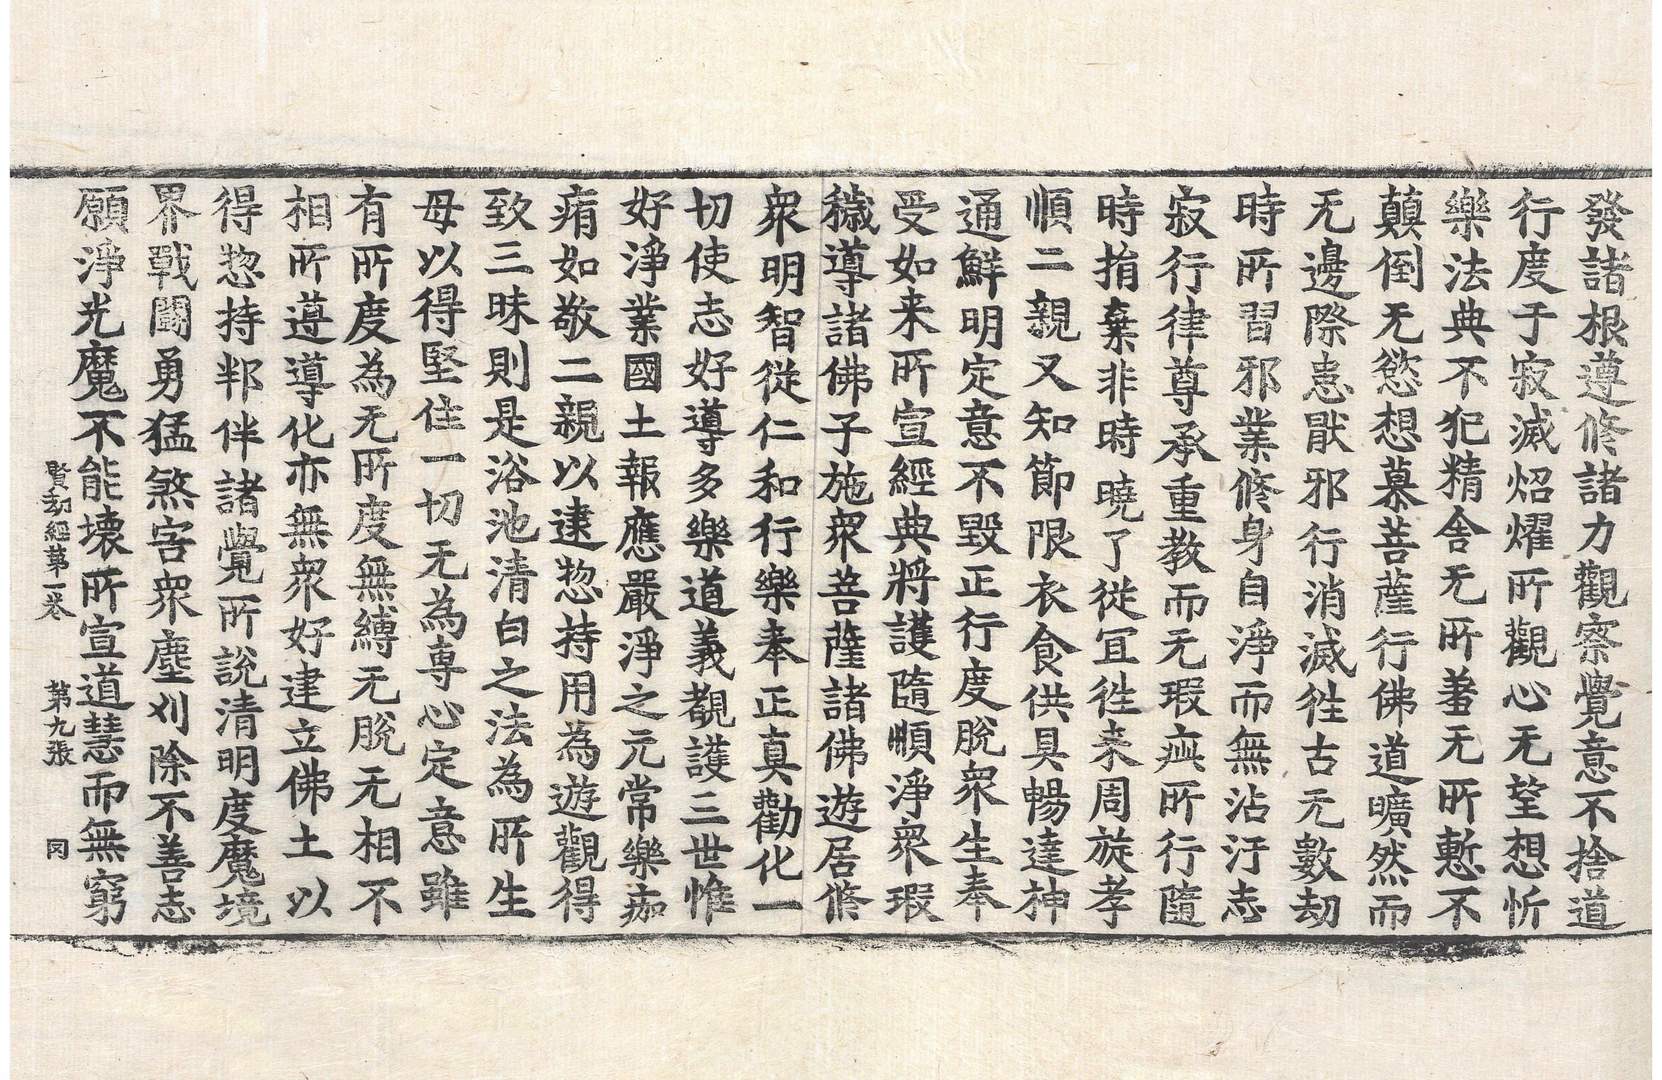 發諸根遵修諸力觀察覺意不捨道
行度于寂滅炤燿所觀心无望想忻
樂法典不犯精舍无所著无所慙不
顛倒无慾想慕菩薩行佛道曠然而
无邊際患猒邪行消滅徃古无數劫
時所習邪業修身自淨而無沾汙志
寂行律尊承重教而无瑕疵所行隨
時捐棄非時曉了從冝徃来周旋孝
順二親又知節限衣食供具暢達神
通鮮明定意不毀正行度脫衆生奉
受如来所宣經典將護隨順淨衆瑕
穢導諸佛子施衆菩薩諸佛遊居修
衆明智從仁和行樂奉正真勸化一
切使志好導多樂道義覩護三世惟
好淨業國土報應嚴淨之元常樂痂
痏如敬二親以逮惣持用為遊觀得
致三昧則是浴池清白之法為所生
母以得堅住一切无為専心定意雖
有所度為无所度無縛无脫无相不
相所遵導化亦無衆好建立佛土以
得惣持郫伴諸覺所說清明度魔境
界戰鬪勇猛煞害衆塵刈除不善志
願淨光魔不能壞所宣道慧而無窮
賢劫經第一卷 第九張 冈